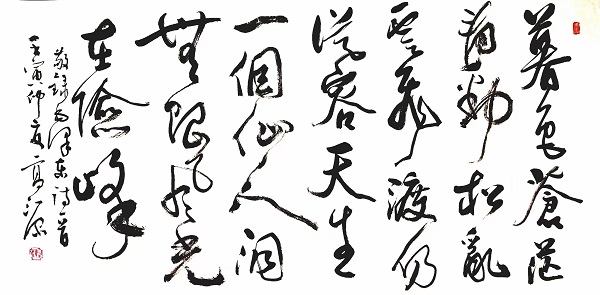 暮色蒼茫
看勁松亂
雲飛渡仍
從容天生
一個仙人洞
無限風光
在險峰
敬錄毛澤東詩一首
壬寅仲夏